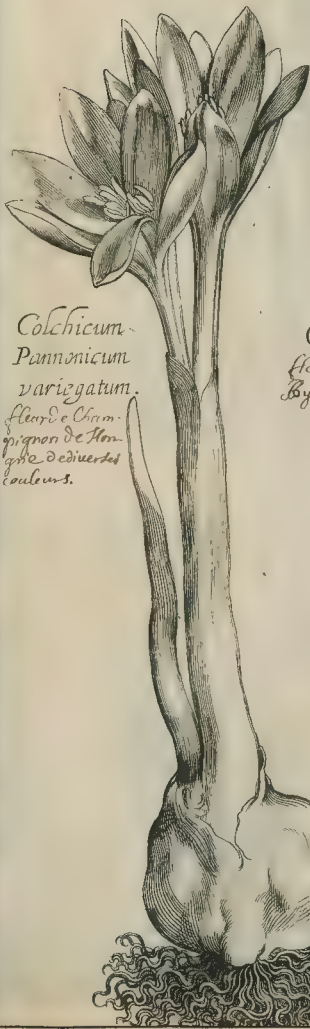 Colchicum
Pannonicum
variegatum.
fleur de Cham-
pignon de Hon-
grie de diverses
couleurs.